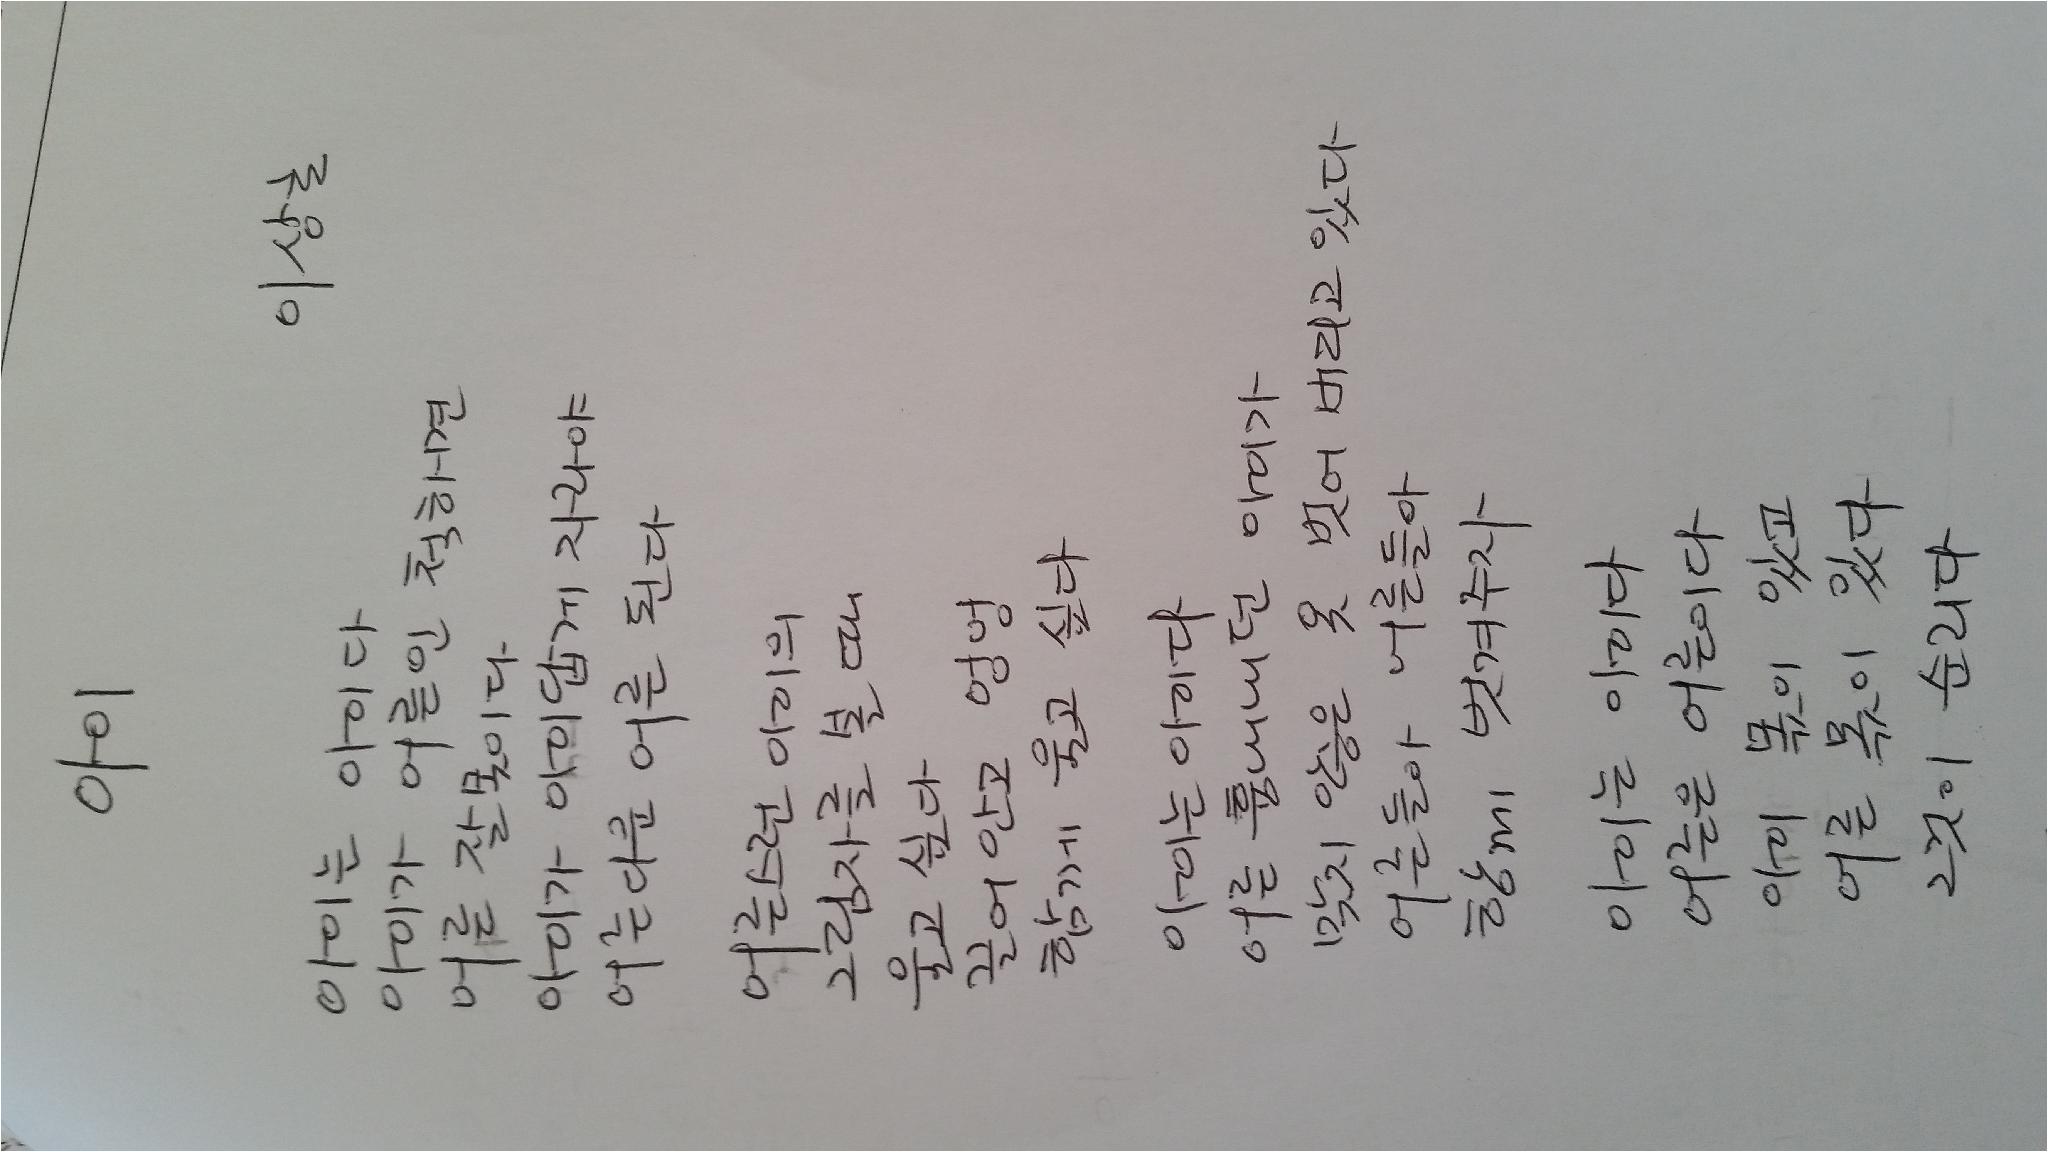 아이
이상글
아이는 아이다
아이가 어른인 척하면
어른 잘못이다
아이가 아이답게 자라야
어른다운 어른 된다
어른스런 아이의
그림자를 볼 때
울고 싶다
끌어안고 엉엉
함께 울고 싶다
아이는 아이다
어른 흉내내던 아이가
맞지 않은 옷 벗어 버리고 있다
어른들아 어른들아
함께 벗겨주자
아이는 아이다
어른은 어른이다
아이 몫이 있고
어른 몫이 있다
그것이 순리다